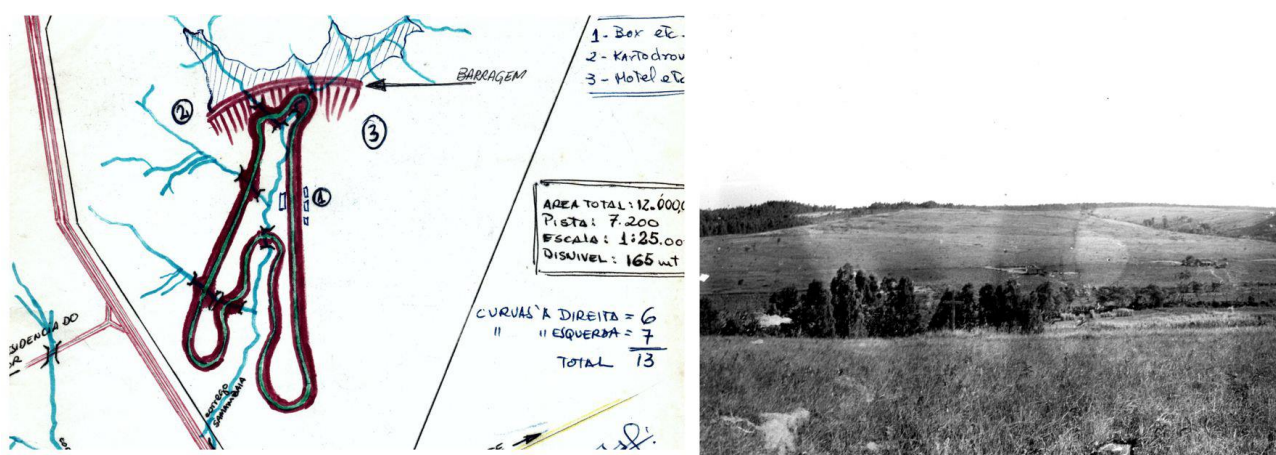 1- Box etc.
2- Kartodrou
3- Hotel etc
BARRAGEM
2
3
1
AREA TOTAL: 12.000,0
PISTA: 7.200
ESCALA: 1:25.00
DISNIVEL: 165 mt
CURVAS A DIREITA = 6
" " ESQUERDA = 7
TOTAL 13
SIDENCIA DO
CORREGO
SAMAMBAIA